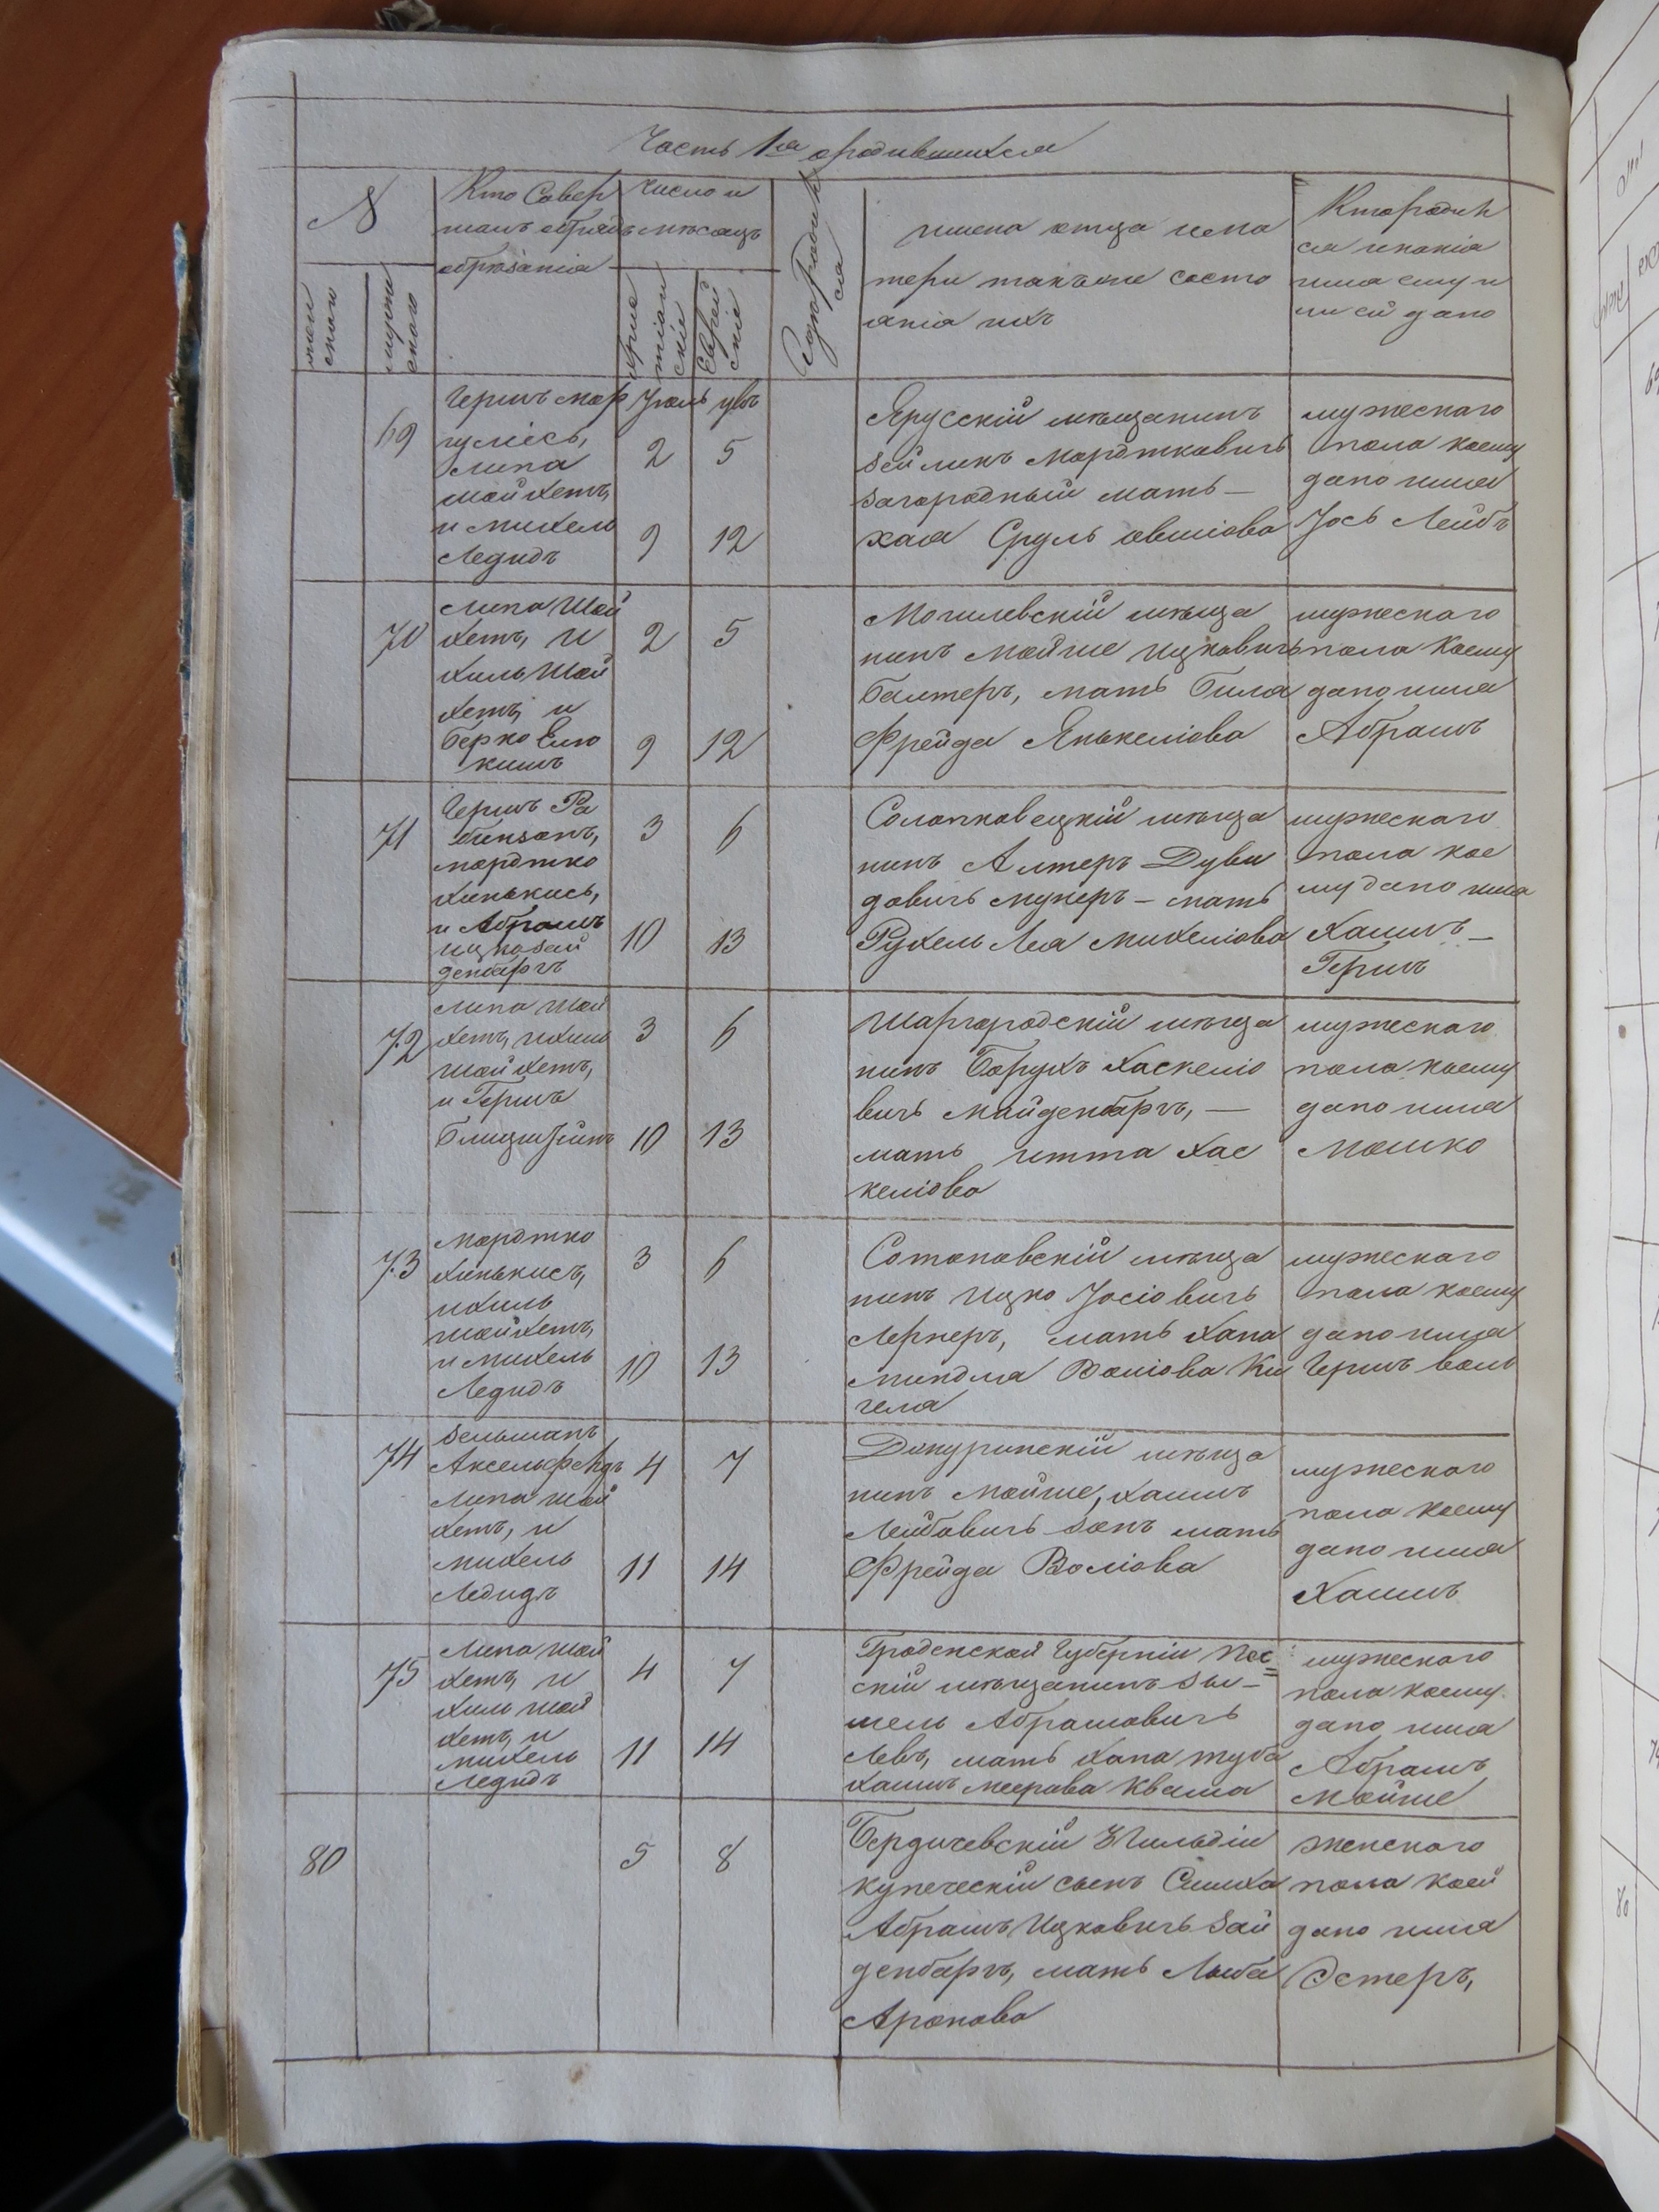 Часть 1ая ородившихся
N
женскаго
мужескаго
Кто Совер
шалъ обрядъ
обрѣзанія
число и
мѣсяцъ
христіанскіе
Еврейскіе
Гдѣ родился
имена отца и ма
тери также состо
янія ихъ
Кто родил
ся и какія
имя ему и
ли ей дано
69
Гершъ Мар
гулісъ,
Липа
Шойхетъ,
и Михель
Ледидъ
Іюль
2
9
5
12
Ярусскій мѣщанинъ
Зейликъ Мордтковичъ
Загородный мать —
Хая Сруль
мужескаго
пола коему
дано имя
Іось Лейбъ
70
Липа Шой
хетъ, и
Хиль Шой
хетъ, и
Берко
2
9
5
12
Могилевскій мѣща
нинъ Мойше Ицковичъ
Балтеръ, мать Била
Фрейда Янькеліова
мужескаго
пола коему
дано имя
Абрамъ
71
Гершъ Ра
бинзонъ,
Мордтко
Хинькисъ,
и Абрамъ
Ицко Зай
денбаргъ
3
10
6
13
Солопковецкій мѣща
нинъ Алтеръ Дуви
довичъ — мать
Рухель Лея Михеліова
мужескаго
пола кое
му дано имя
Хаимъ —
Гершъ
72
Липа Шой
хетъ, и Хиль
Шойхетъ,
и Гершъ
3
10
6
13
Шаргородскій мѣща
нинъ Борухъ Хаскеліо
вичъ Майденбаргъ, —
мать Итта Хас
келіова
мужескаго
пола коему
дано имя
Мошко
73
Мордтко
Хинькисъ,
и Хиль
Шойхетъ,
и Михель
Ледидъ
3
10
6
13
мѣща
нинъ Ицко Іосіовичъ
Лернеръ, мать Хана
Миндля Воліова Ки
геля
мужескаго
пола коему
дано имя
Гершъ Воль
74
Зельманъ
Аксельфельдъ
Липа Шой
хетъ, и
Михель
Ледидъ
4
11
7
14
мѣща
нинъ Мойше, Хаимъ
Лейбовичъ Зонъ мать
Фрейда Воліова
мужескаго
пола коему
дано имя
Хаимъ
75
Липа Шой
хетъ, и
Хиль Шой
хетъ, и
Михель
Ледидъ
4
11
7
14
Гроденской Губерніи
скій мѣщанинъ Зы-
мель Абрамовичъ
Левъ, мать Хана Туба
Хаимъ Меерова Кваша
мужескаго
пола коему
дано имя
Абрамъ
Мойше
80
5
8
Бердичевскій 3 Гильдіи
купеческій сынъ Симха
Абрамъ Ицковичъ Зай
денбаргъ, мать Люба
Аронова
женскаго
пола коей
дано имя
Эстеръ,